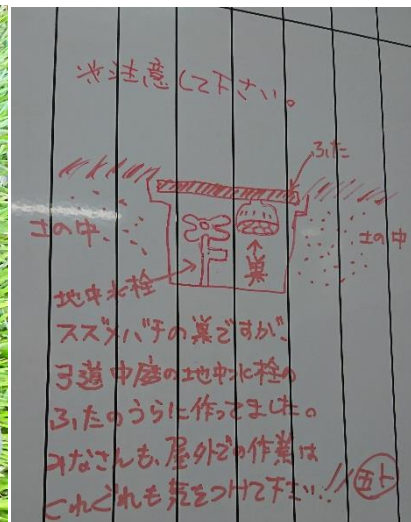 ※注意して下さい。
ふた
土の中
土の中
巣
地中水栓
スズメバチの巣ですが、
弓道中庭の地中水栓の
ふたのうらに作ってました。
みなさんも、屋外での作業は
くれぐれも気をつけて下さい!!